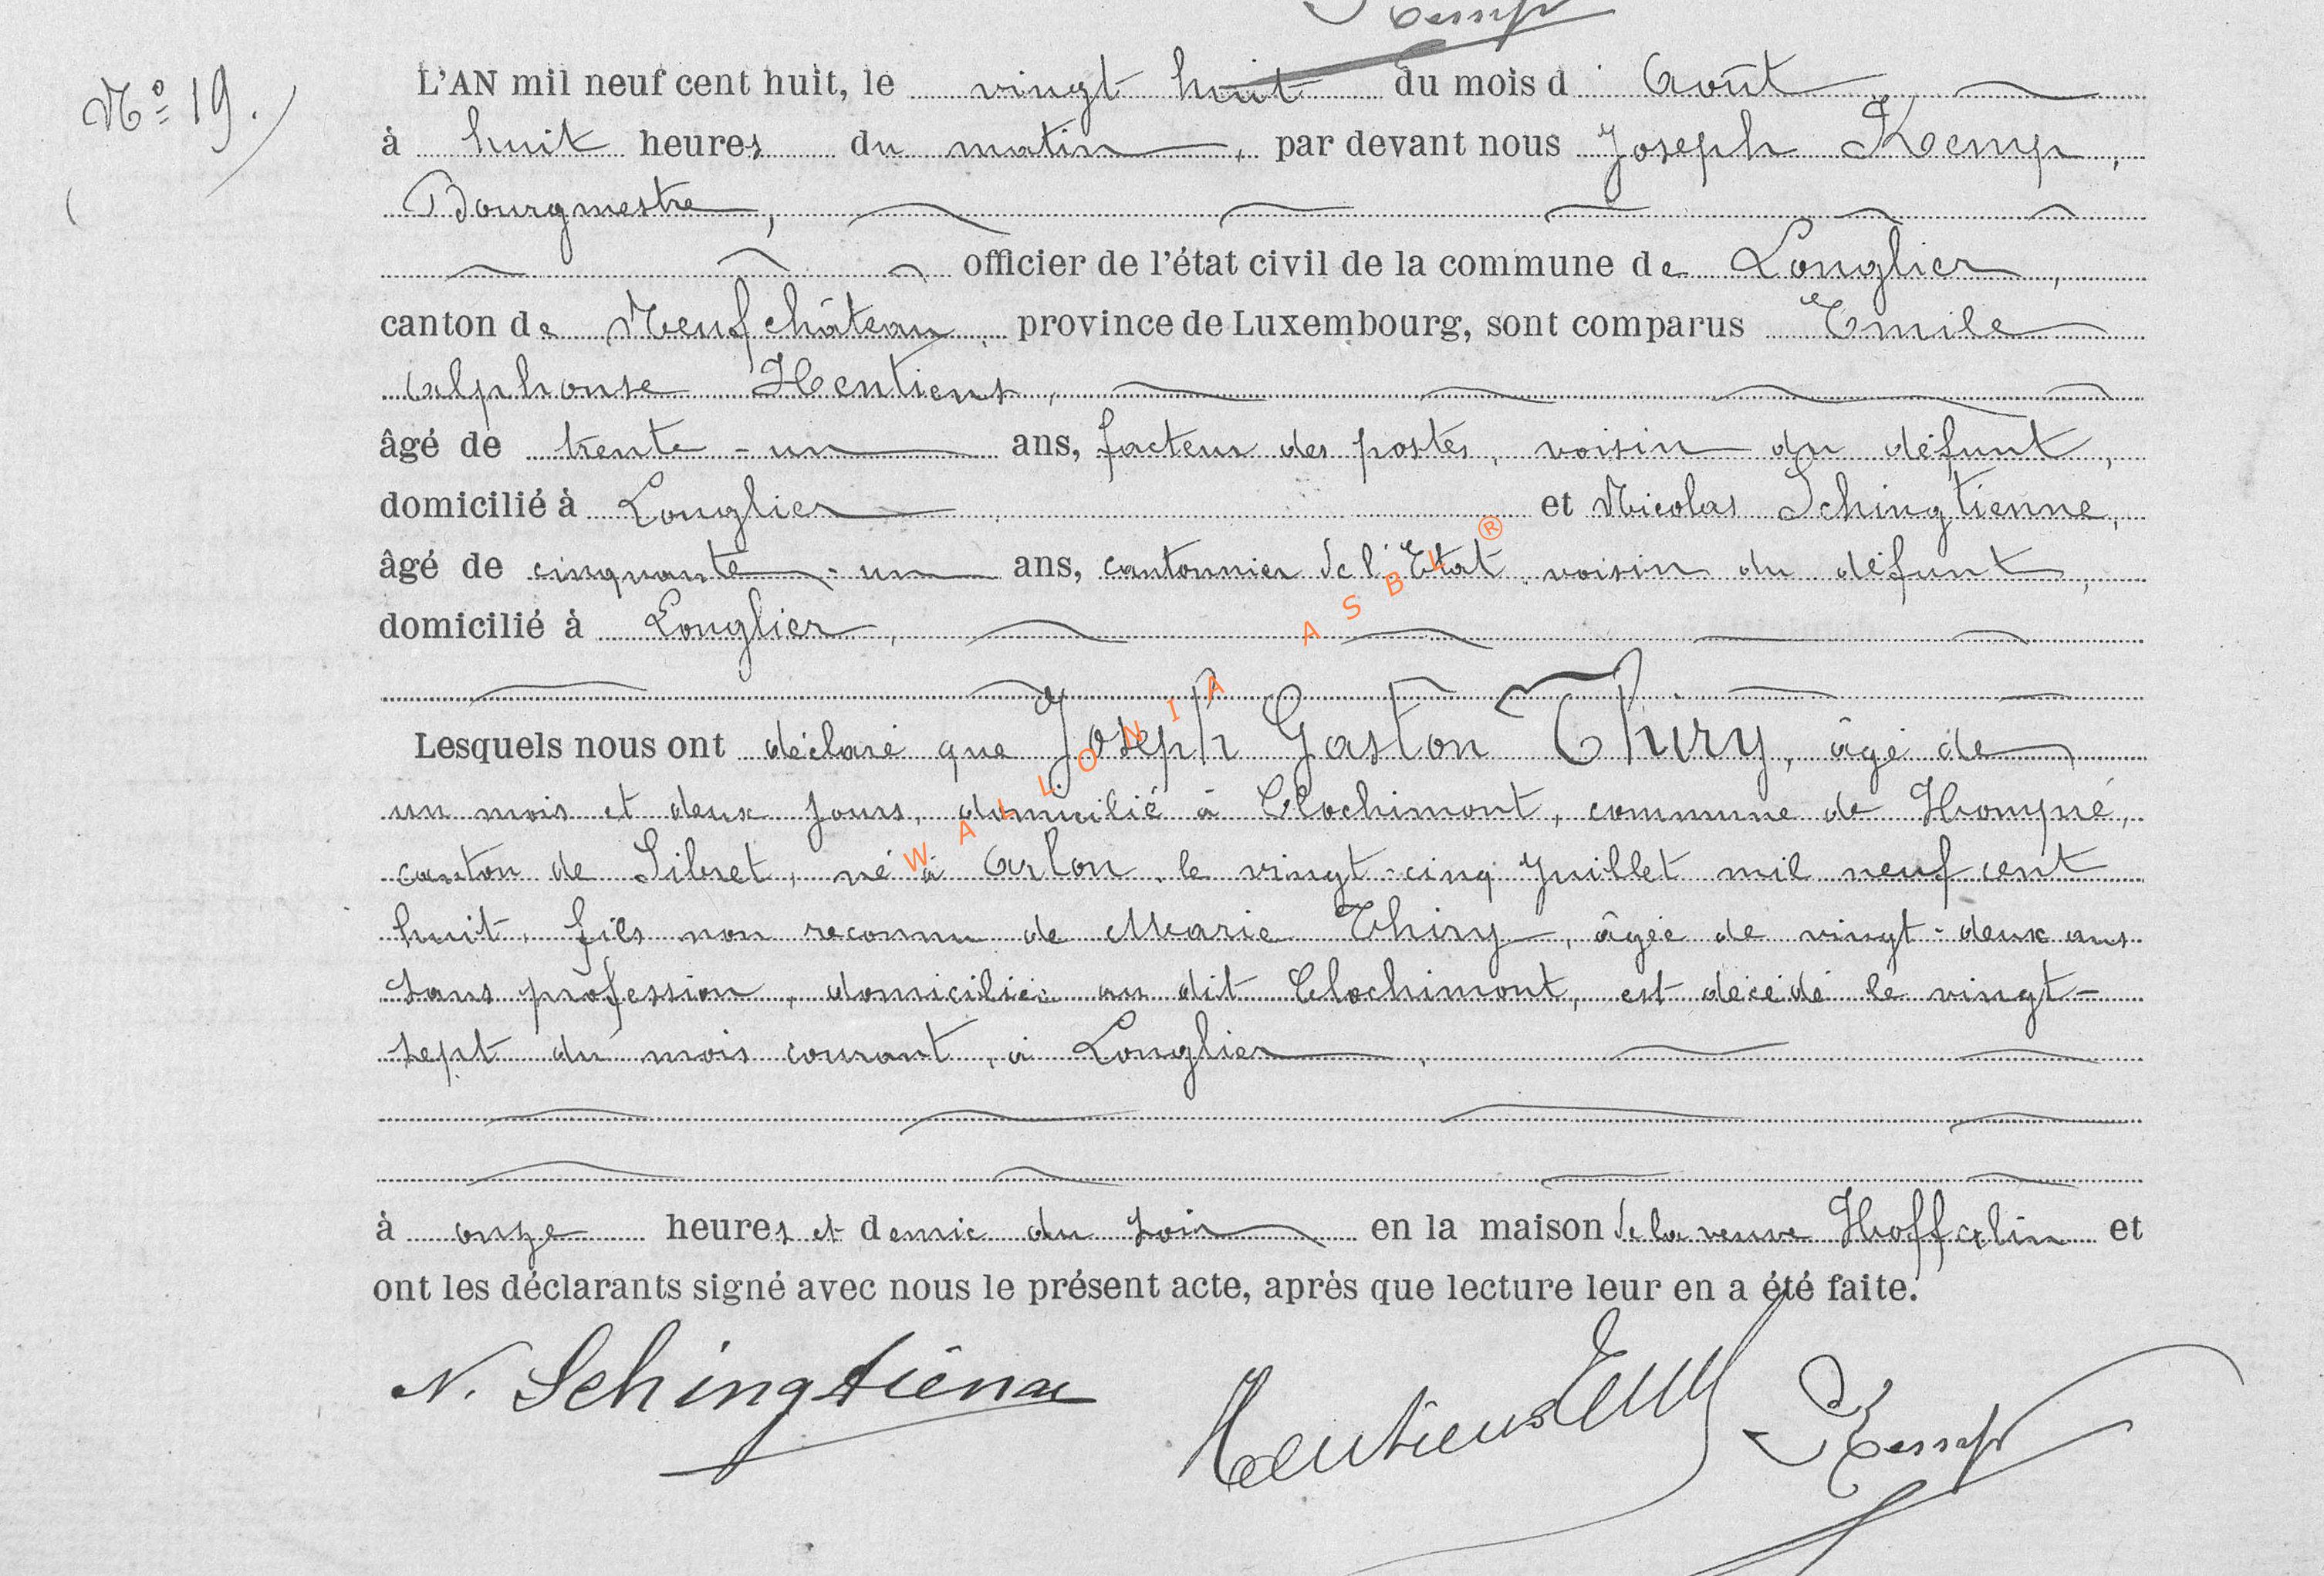 Kemp
N° 19.
L'AN mil neuf cent huit, le vingt huit du mois d'Août
à huit heures du matin, par devant nous Joseph Kemp,
Bourgmestre,
officier de l'état civil de la commune de Longlier,
canton de Neufchâteau, province de Luxembourg, sont comparus Emile
Alphonse Hentiens,
âgé de trente-un ans, facteur des postes, voisin du défunt,
domicilié à Longlier et Nicolas Schingtienne,
âgé de cinquante-un ans, cantonnier de l'Etat, voisin du défunt,
domicilié à Longlier,
Lesquels nous ont déclaré que Joseph Gaston Thiry, âgé de
un mois et deux jours, domicilié à Clochimont, commune de Hompré,
canton de Sibret, né à Arlon, le vingt-cinq Juillet mil neuf cent
huit, fils non reconnu de Marie Thiry, âgée de vingt-deux ans
sans profession, domiciliée au dit Clochimont, est décédé le vingt-
sept du mois courant, à Longlier,
à onze heures et demie du soir en la maison de la veuve Hoffelin et
ont les déclarants signé avec nous le présent acte, après que lecture leur en a été faite.
N. Schingtienne Hentiens Kemp
WALLONIA ASBL ®